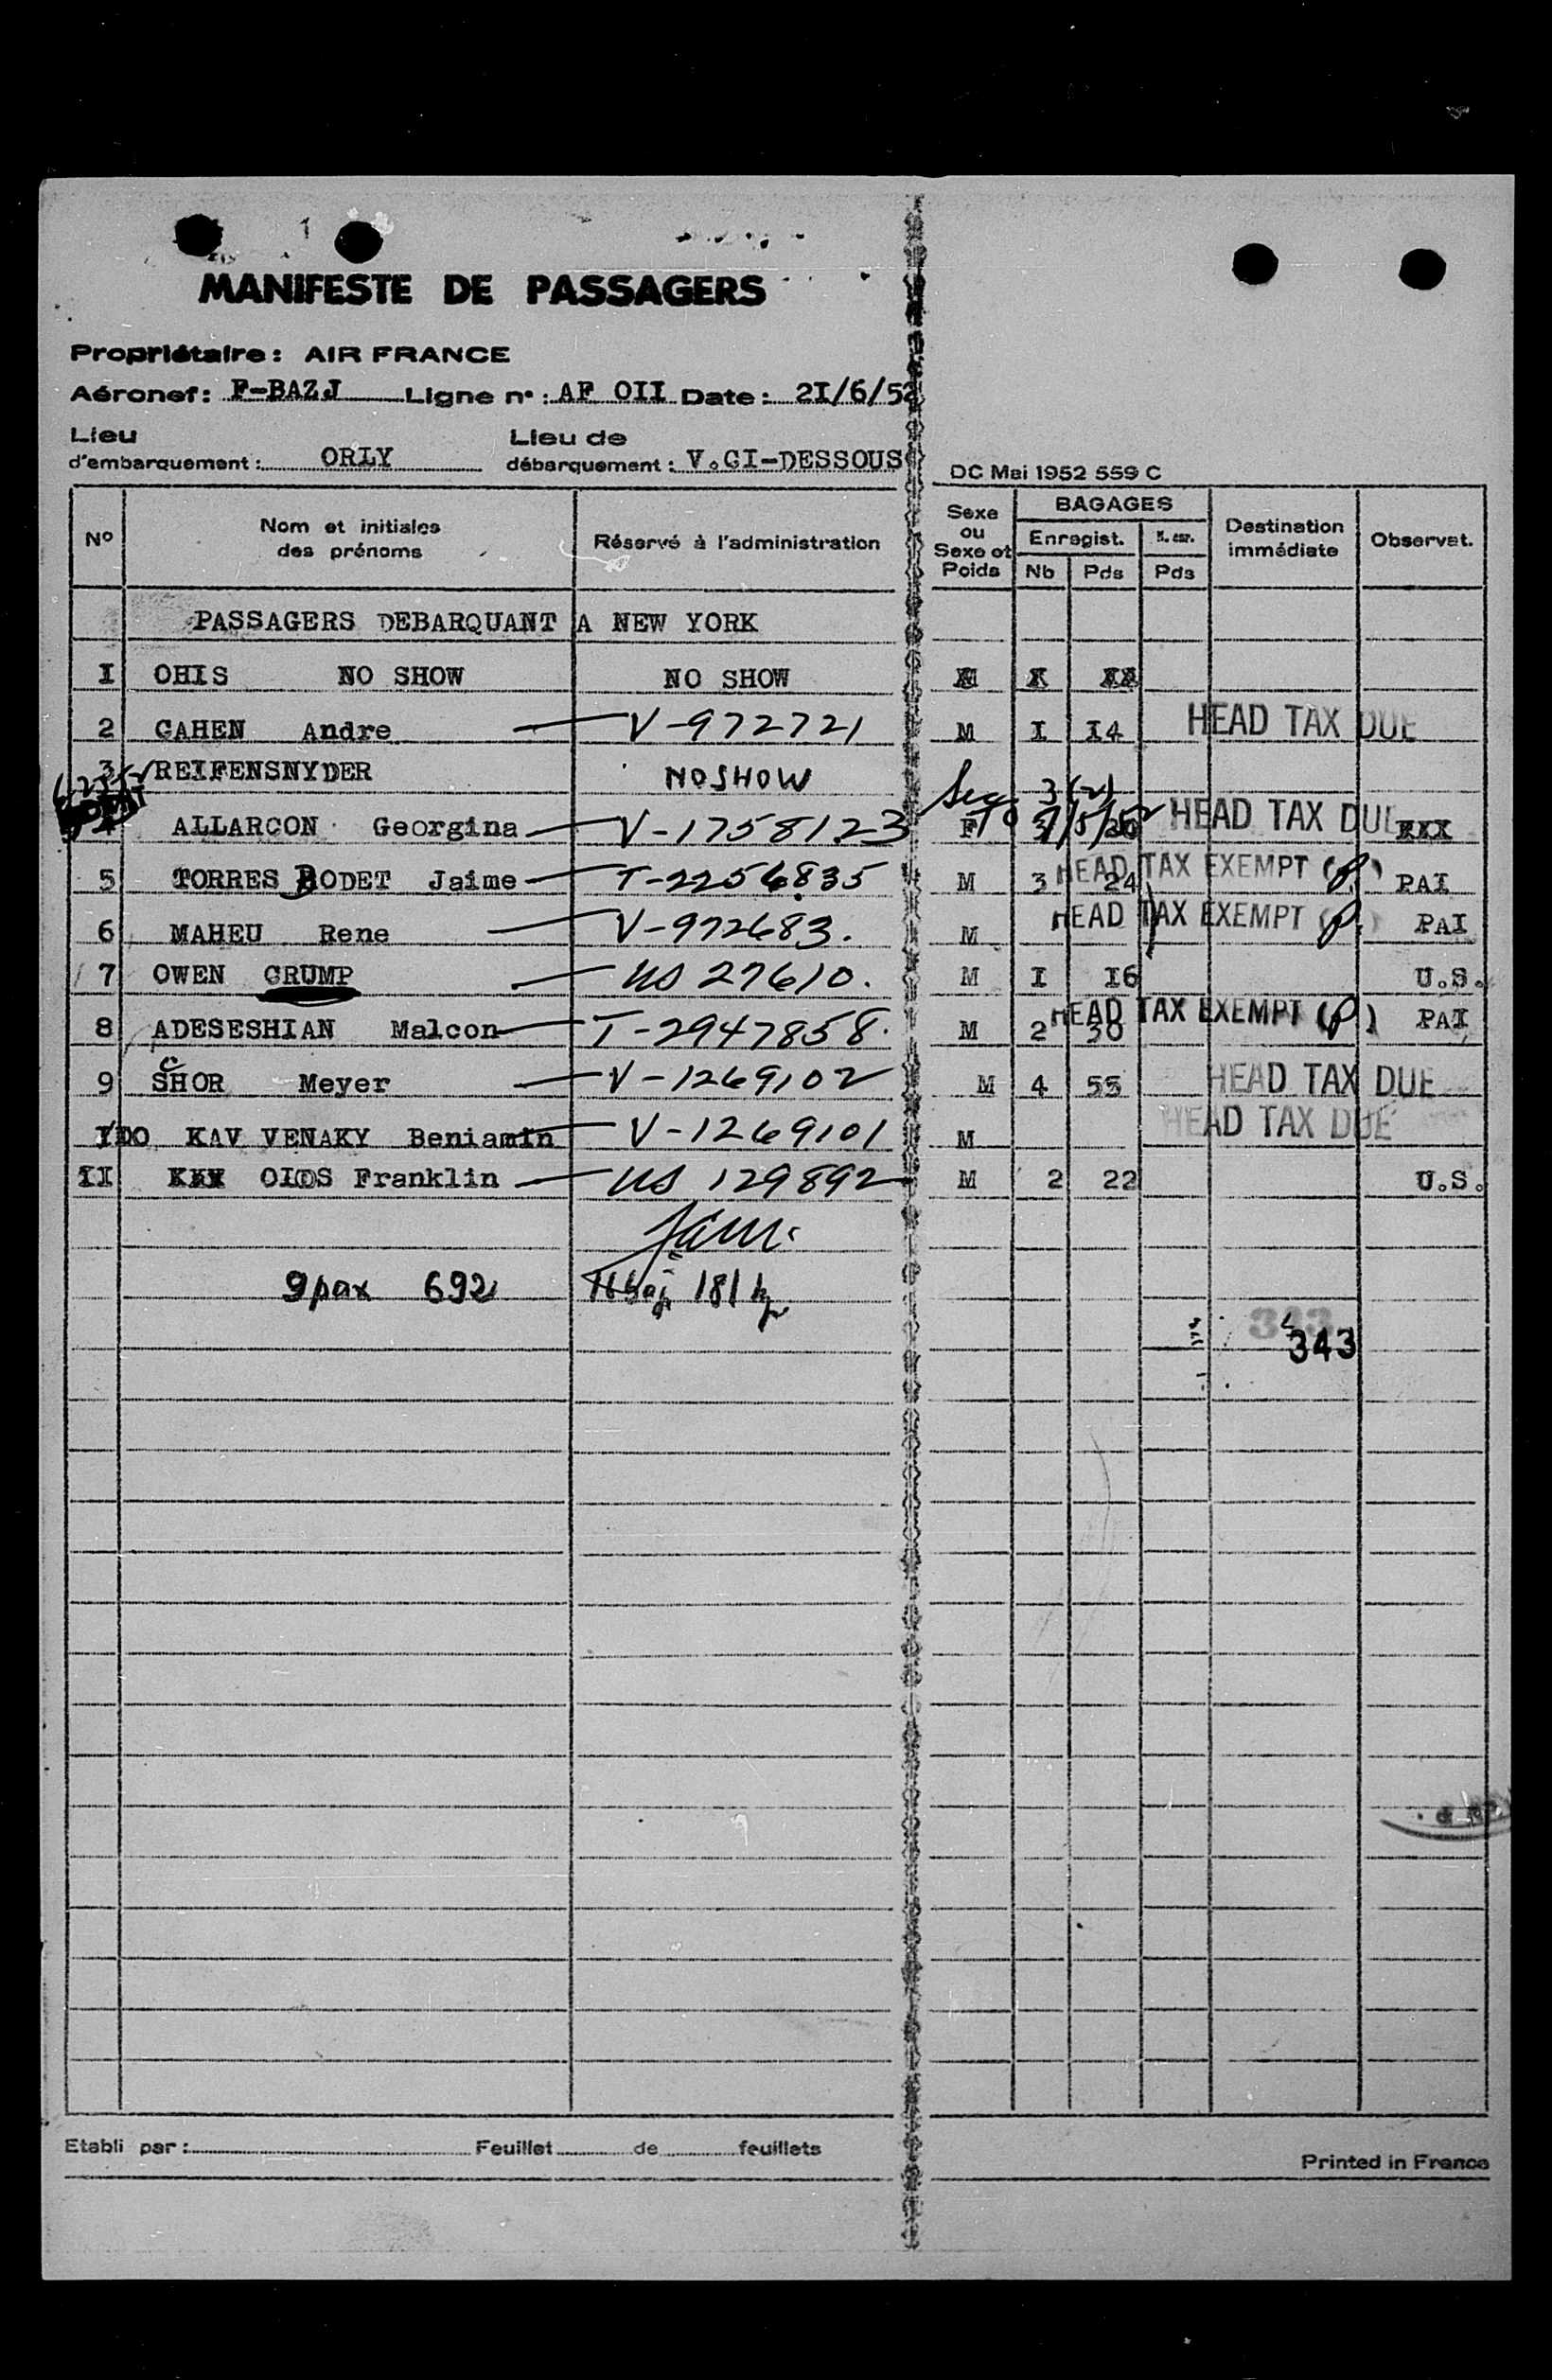 1
MANIFESTE DE PASSAGERS
Propriétaire: AIR FRANCE
Aéronef: F-BAZJ Ligne n°: AF OII Date: 2I/6/52
Lieu d'embarquement: ORLY Lieu de débarquement: V.CI-DESSOUS
DC Mai 1952 559 C
N° Nom et initiales des prénoms Réservé à l'administration Sexe ou Sexe et Poids BAGAGES Enregist. Nb Pds N. enr. Pds Destination immédiate Observat.
PASSAGERS DEBARQUANT A NEW YORK
I OHIS NO SHOW NO SHOW
2 CAHEN Andre V-972721 M I I4 HEAD TAX DUE
3 REIFENSNYDER NO SHOW
4 ALLARCON Georgina V-1758123 F HEAD TAX DUE
5 TORRES BODET Jaime T-2256835 M 3 24 HEAD TAX EXEMPT PAI
6 MAHEU Rene V-972683. M HEAD TAX EXEMPT PAI
7 OWEN CRUMP US 27610. M I I6 U.S.
8 ADESESHIAN Malcon T-2947858. M 2 30 HEAD TAX EXEMPT PAI
9 SCHOR Meyer V-1269102 M 4 55 HEAD TAX DUE
IO KAV VENAKY Beniamin V-1269101 M HEAD TAX DUE
II OIDS Franklin US 129892 M 2 22 U.S.
9 pax 692 181 k
343
343
Etabli par: Feuillet de feuillets
Printed in France